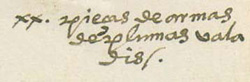 xx. pieças de armas
de plumas vala
diss.